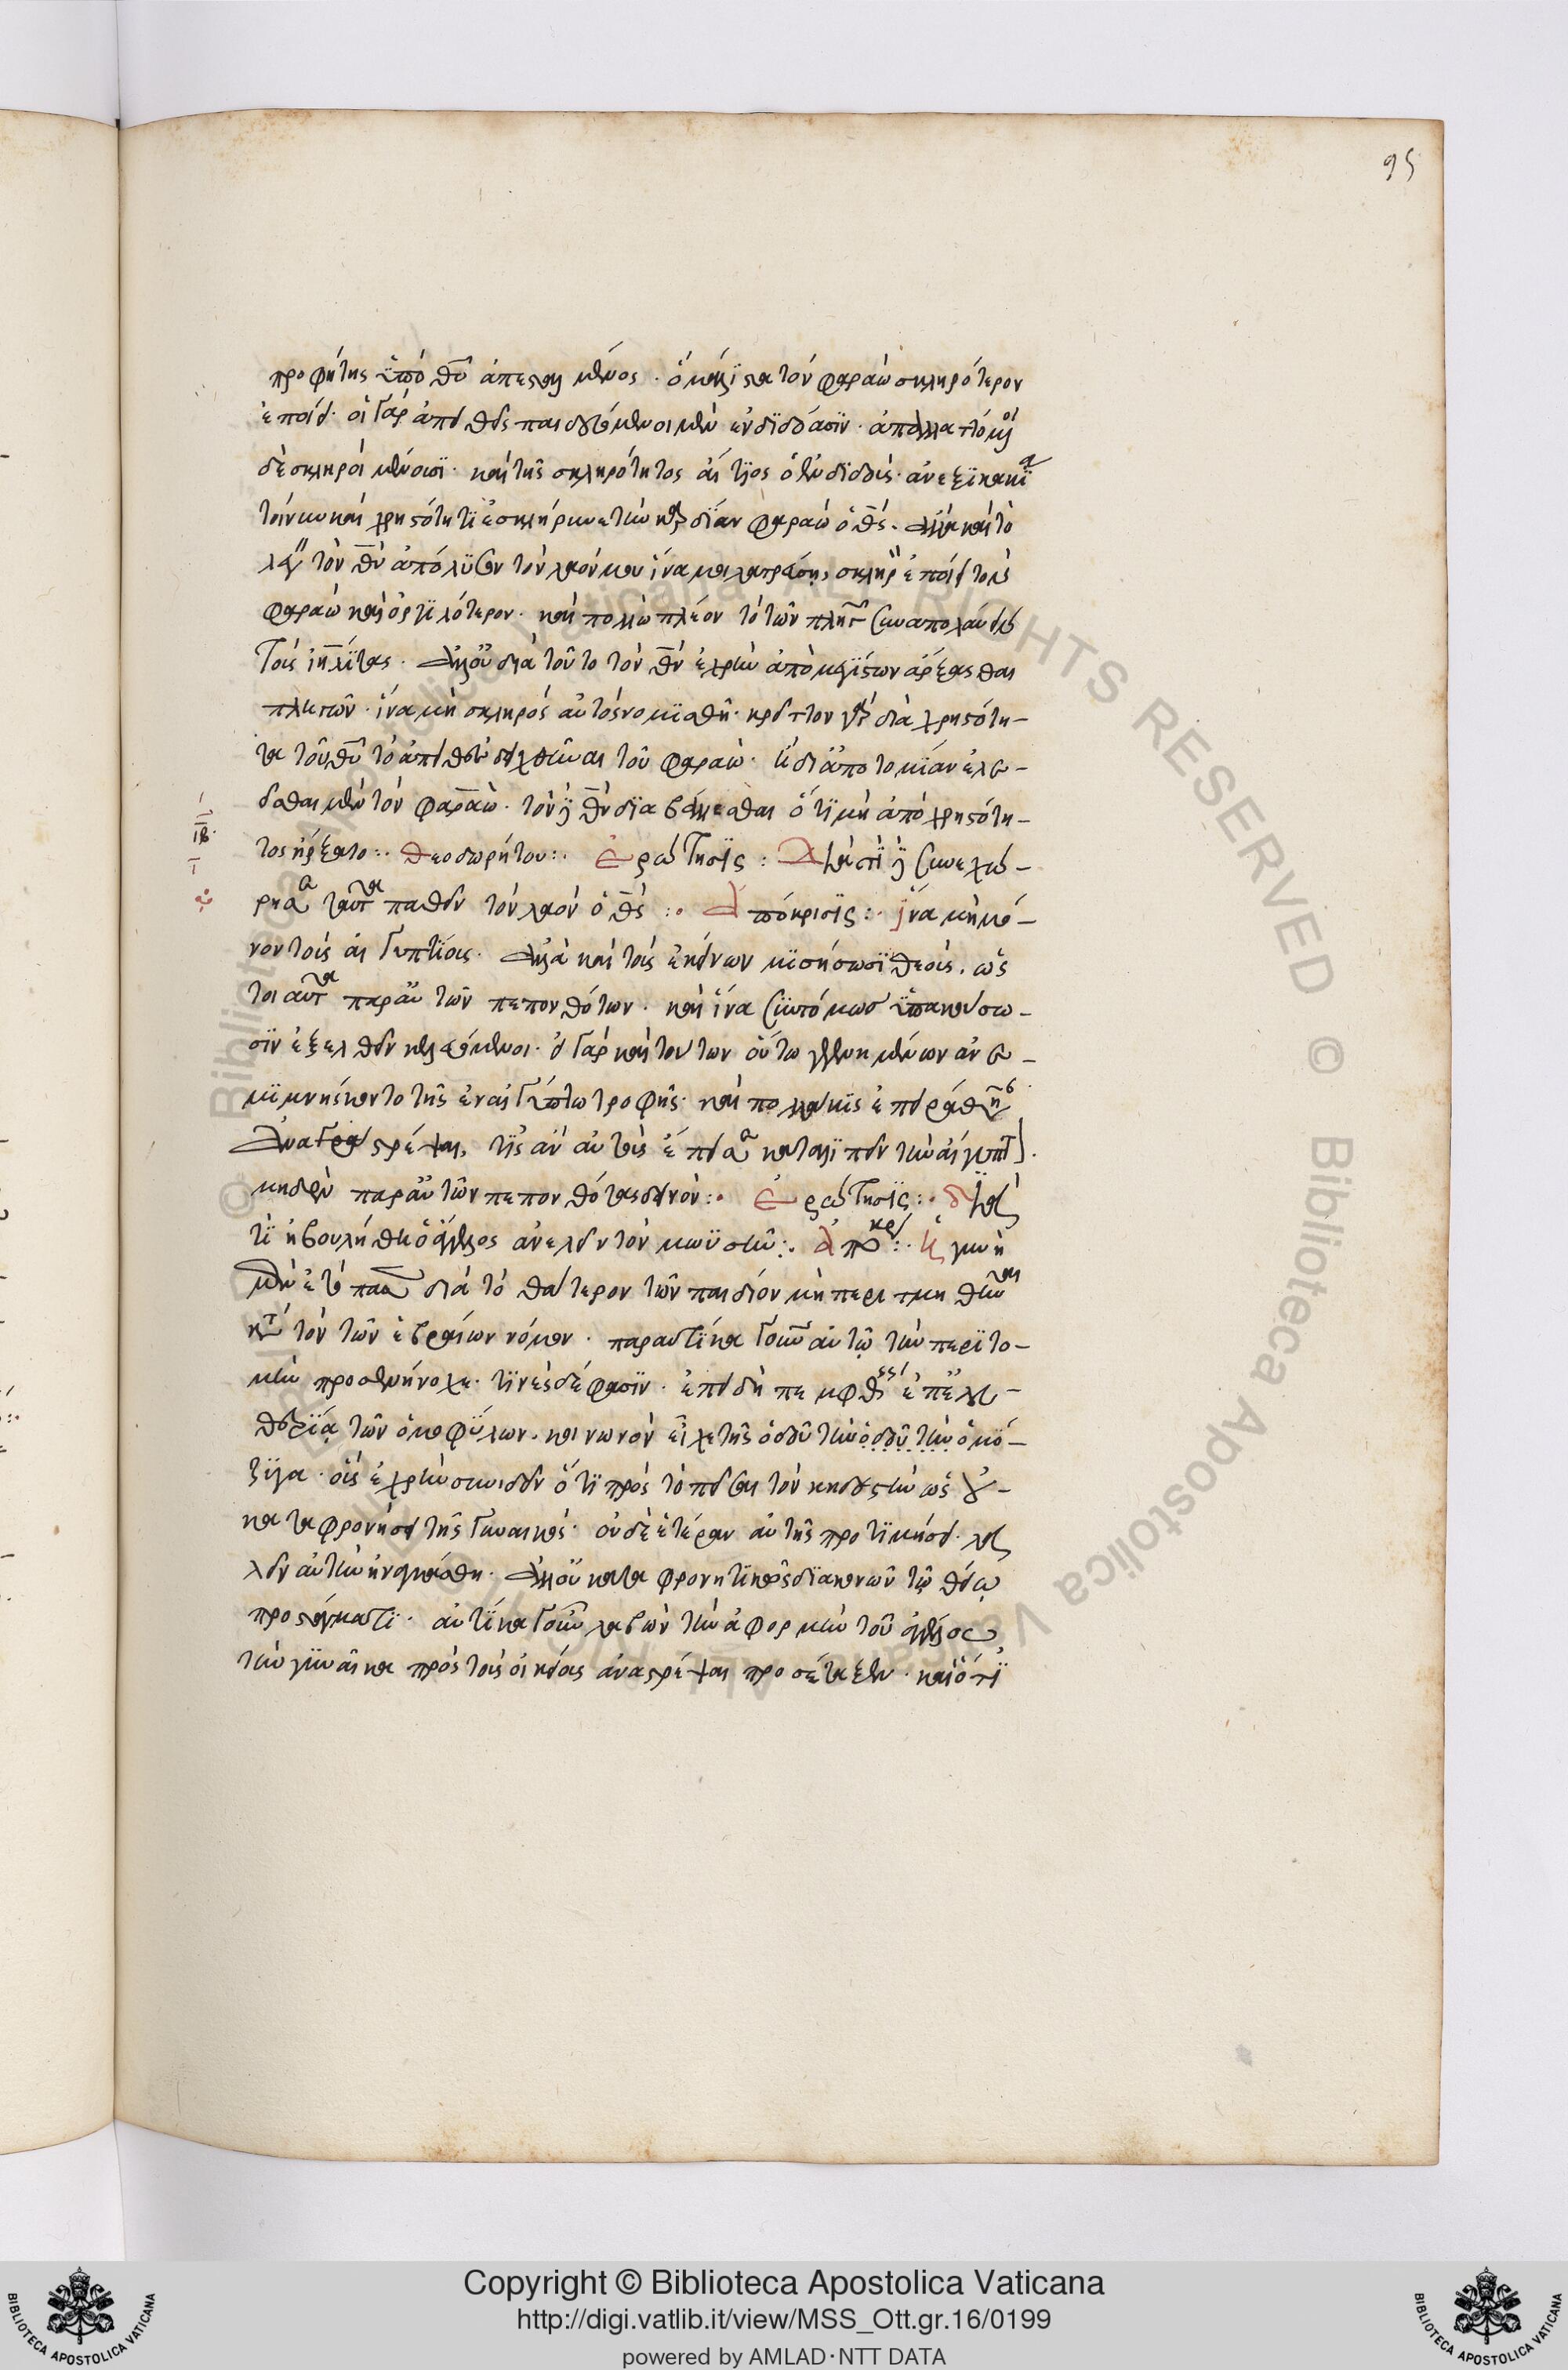 95
προφήτης ὑπὸ θῦ ἀπεσταλμένος. ὁ μάλιστα τὸν φαραὼ σκληρότερον
ἐποίει. οἱ γὰρ
δὲ σκληροὶ μένουσι. καὶ τῆς σκληρότητος αἴτιος ὁ ἐνδιδοὺς. ἀνεξικακία
τοίνυν καὶ χρηστότητι ἐσκλήρυνε τὴν καρδίαν φαραὼ ὁ θς. ἀλλὰ καὶ τὸ
τὸν θν ἀπόλυσον τὸν λαόν μου ἵνα μοι λατρεύση, σκληρ ἐποίει τὸν
φαραὼ καὶ ὀργιλότερον. καὶ πολλῶ πλέον τὸ τῶν πληγ συναπολαύειν
τοὺς ἰηλίτας. ἀλλ' οὐ διὰ τοῦτο τὸν θν ἐχρῆν ἀπὸ μεγίστων ἄρξασθαι
πληγῶν. ἵνα μὴ σκληρὸς αὐτὸς νομισθῆ. κρεῖττον γὰρ διὰ χρηστότη-
τα τοῦ θῦ τὸ ἀπειθὲς δειχθῆναι τοῦ φαραώ. ἢ δι' ἀποτομίαν ἐλε-
εῖσθαι μὲν τὸν φαραὼ. τὸν δὲ θν διαβάλλεσθαι ὅτι μὴ ἀπὸ χρηστότη-
τος ἤρξατο:· Θεοδωρήτου:· Ἐρώτησις: Διατί δὲ συνεχώ-
ρησε ταῦτα παθεῖν τὸν λαὸν ὁ θς:· Ἀπόκρισις:· ἵνα μὴ μό-
νον τοὺς αἰγυπτίους. ἀλλὰ καὶ τοὺς ἐκείνων μισήσωσι θεοὺς. ὡς
τοιαῦτα παρ' αὐτῶν πεπονθότων. καὶ ἵνα συντόμως ὑπακούσω-
σιν ἐξελθεῖν κελευόμενοι. εἰ γὰρ καὶ τούτων οὕτω γεγενημένων ἀνε-
μιμνήσκοντο τῆς ἐν αἰγύπτω τροφῆς. καὶ πολλάκις ἐπειράθησ
ἀναστρέψαι, τίς ἂν αὐτοὺς ἔπεισε καταλιπεῖν τὴν αἴγυπτ
μηδὲν παρ' αὐτῶν πεπονθότας δεινὸν:· Ἐρώτησις:· διὰ
τί ἠβουλήθη ὁ ἄγγελος ἀνελεῖν τὸν μωϋσῆν:· ἀπόκρ:· ἡ γυνὴ
διὰ τὸ θάτερον τῶν παιδίον μὴ περιτμηθῆναι
κατὰ τὸν τῶν ἑβραίων νόμον. παραυτίκα γοῦν αὐτῶ τὴν περιτο-
μὴν προσενήνοχε. τινὲς δέ φασιν. ἐπειδὴ
ἐλευθερία τῶν ὁμοφύλων. κοινωνὸν εἶχε τῆς ὁδοῦ τὴν ὁδοῦ τὴν ὁμό-
ζυγα. οἷς ἐχρῆν συνιδεῖν ὅτι πρὸς τὸ πεῖσαι τὸν κηδεστὴν ὡς οὐ-
καταφρονήσει τῆς γυναικὸς. οὐδὲ ἑτέραν αὐτῆς προτιμήσει.
λαβεῖν αὐτὴν ἠναγκάσθη. ἀλλ' οὐ καταφρονητικῶς διακονῶν τῶ θείω
προστάγματι. αὐτίκα γοῦν λαβὼν τὴν ἀφορμὴν τοῦ ἀγγέλου
τὴν γυναῖκα πρὸς τοὺς οἰκείους ἀναστρέψαι προσέταξεν. καὶ ὅτι
Copyright © Biblioteca Apostolica Vaticana
http://digi.vatlib.it/view/MSS_Ott.gr.16/0199
powered by AMLAD·NTT DATA
BIBLIOTECA APOSTOLICA VATICANA
BIBLIOTECA APOSTOLICA VATICANA